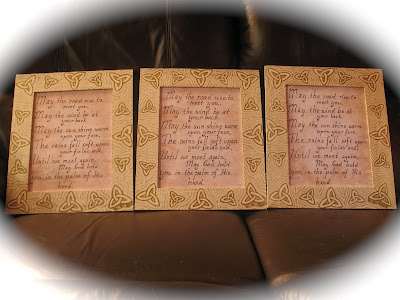 May the road rise to
meet you,
May the wind be at
your back
May the sun shine warm
upon your face,
The rains fall soft upon
your fields and,
Until we meet again,
May God hold
you in the palm of His
hand.
May the road rise to
meet you,
May the wind be at
your back
May the sun shine warm
upon your face,
The rains fall soft upon
your fields and,
Until we meet again,
May God hold
you in the palm of His
hand.
May the road rise to
meet you,
May the wind be at
your back
May the sun shine warm
upon your face,
The rains fall soft upon
your fields and,
Until we meet again,
May God hold
you in the palm of His
hand.